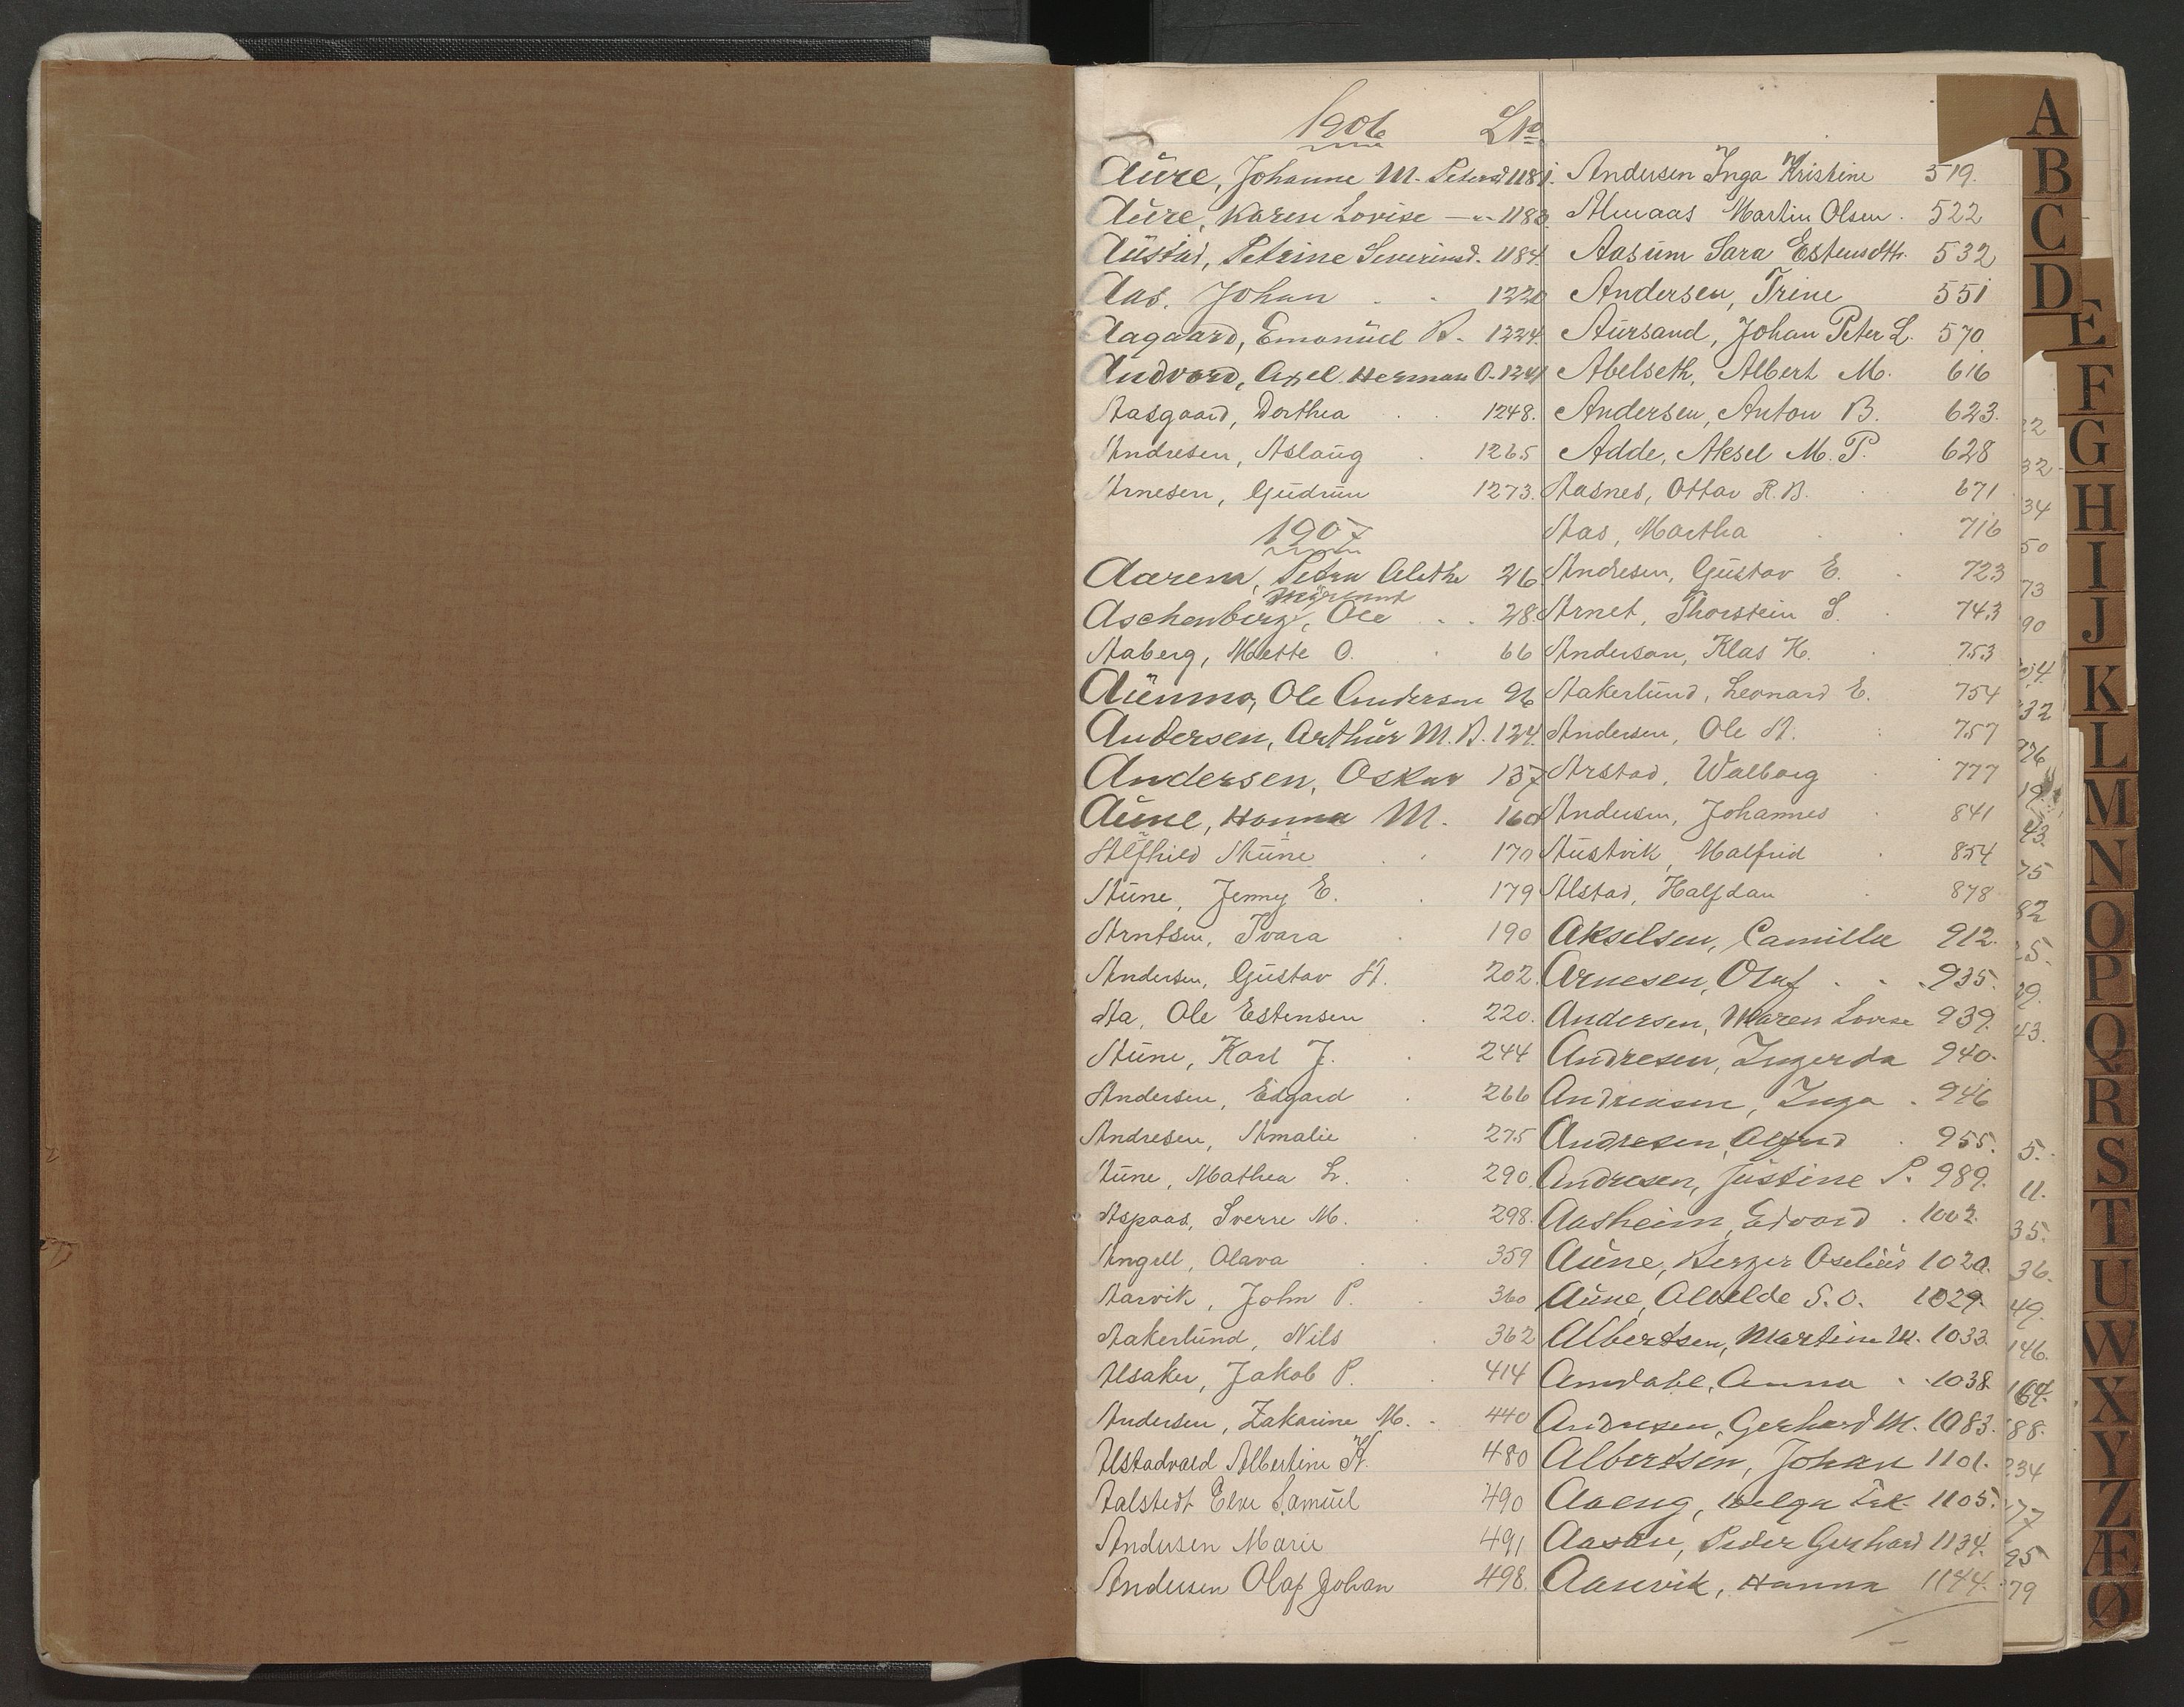 1906 LNo
Aüre, Johanne M. Petersd 1181.
Aüre, Karen Lovise —"- 1183.
Aüstad, Petrine Severinsd. 1184.
Aas. Johan . . 1220
Aagaard, Emanüel B. 1224.
Andvord, Axel Herman O. 1241
Aasgaard, Dorthea . . 1248.
Andresen, Aslaüg . 1265
Arnesen, Güdrün 1273.
1907
Petra Alethe 26
Aschenberg, Ole . . 28
Aaberg, Mette O. . 66
Ole Andersen 96
Andersen, Arthür M. B. 124.
Andersen, Oskar 137
Aüne, Hanna M. 160
Alfhild Aüne . . 170
Aüne, Jenny E. . 179
Arntsen, Tvara . 190
Andersen, Güstav A. 202.
Aa, Ole Estensen . 220.
Aüne, Karl J. . 244
Andersen, Edgard . 266
Andresen, Amalie . 275
Aüne, Mathea L. . 290.
Aspaas, Sverre M. . 298.
Angell, Olava . . 359
Aarvik, John P. . 360
Aakerlünd, Nils . 362
Alsaker, Jakob P. . 414
Andersen, Zakarine M. . 440
Alstadvold Albertine K. 480
Aalstedt Samüel 490
Andersen Marie 491
Andersen Olaf Johan 498.
Andersen Inga Kristine 519.
Almaas Martin Olsen . 522
Aasüm Sara Estensdtr. 532
Andersen, Trine 551
Aürsand, Johan Peter L. 570
Abelseth, Albert M. 616
Andersen, Anton B. 623.
Adde, Aksel M. P. 628
Aasnes, Ottar R. B. . 671
Aas, Martha . . 716
Andresen, Güstav E. . 723
Arnet, Thorstein S. . 743
Anderson, Klas H. . 753
Aakerlünd, Leonard E. 754
Andersen, Ole A. : 757
Arstad, Walborg . 777
Andersen, Johannes . 841
Aüstvik, Malfrid . 854
Alstad, Halfdan . 878
Akselsen, Camilla 912.
Arnesen, Olaf . . . 935.
Andersen, Maren Lovise 939.
Andresen, Ingerda 940.
Andreasen, Inga . 946
Andresen, Alfred . 955.
Andresen, Jüstine P. 989.
Aasheim, Edvard . 1002.
Aüne, Berger Oseliüs 1020.
Aüne, S. O. 1029.
Albertsen, Martin M. 1033
Amdahl, Anna . . 1038
Andresen, Gerhard M. 1083.
Albertsen, Johan 1101.
Aaeng, Helga 1105.
Aasan, Peder Gerhard 1134.
Aanvik, Hanna 1144.
A
B
C
D
E
F
G
H
I
J
K
L
M
N
O
P
Q
R
S
T
U
W
X
Y
Z
Æ
Ø